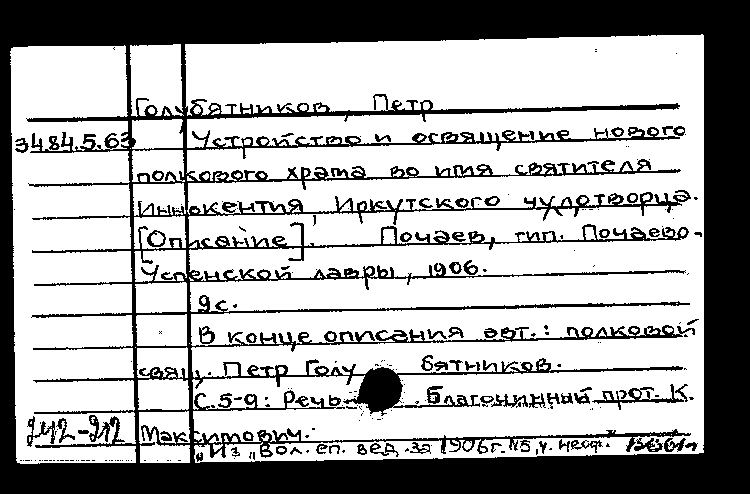 Голубятников, Петр
3484.5.63 Устройство и освящение нового
полкового храма во имя святителя
Иннокентия, Иркутского чудотворца.
[Описание]. Почаев, тип. Почаево-
Успенской лавры, 1906.
9с.
В конце описания авт.: полковой
свящ. Петр Голубятников.
С.5-9: Речь Благочинный прот. К.
Максимович.
242-212
"Из "Вол. еп. вед. за 1906г. №5, ч. неоф."